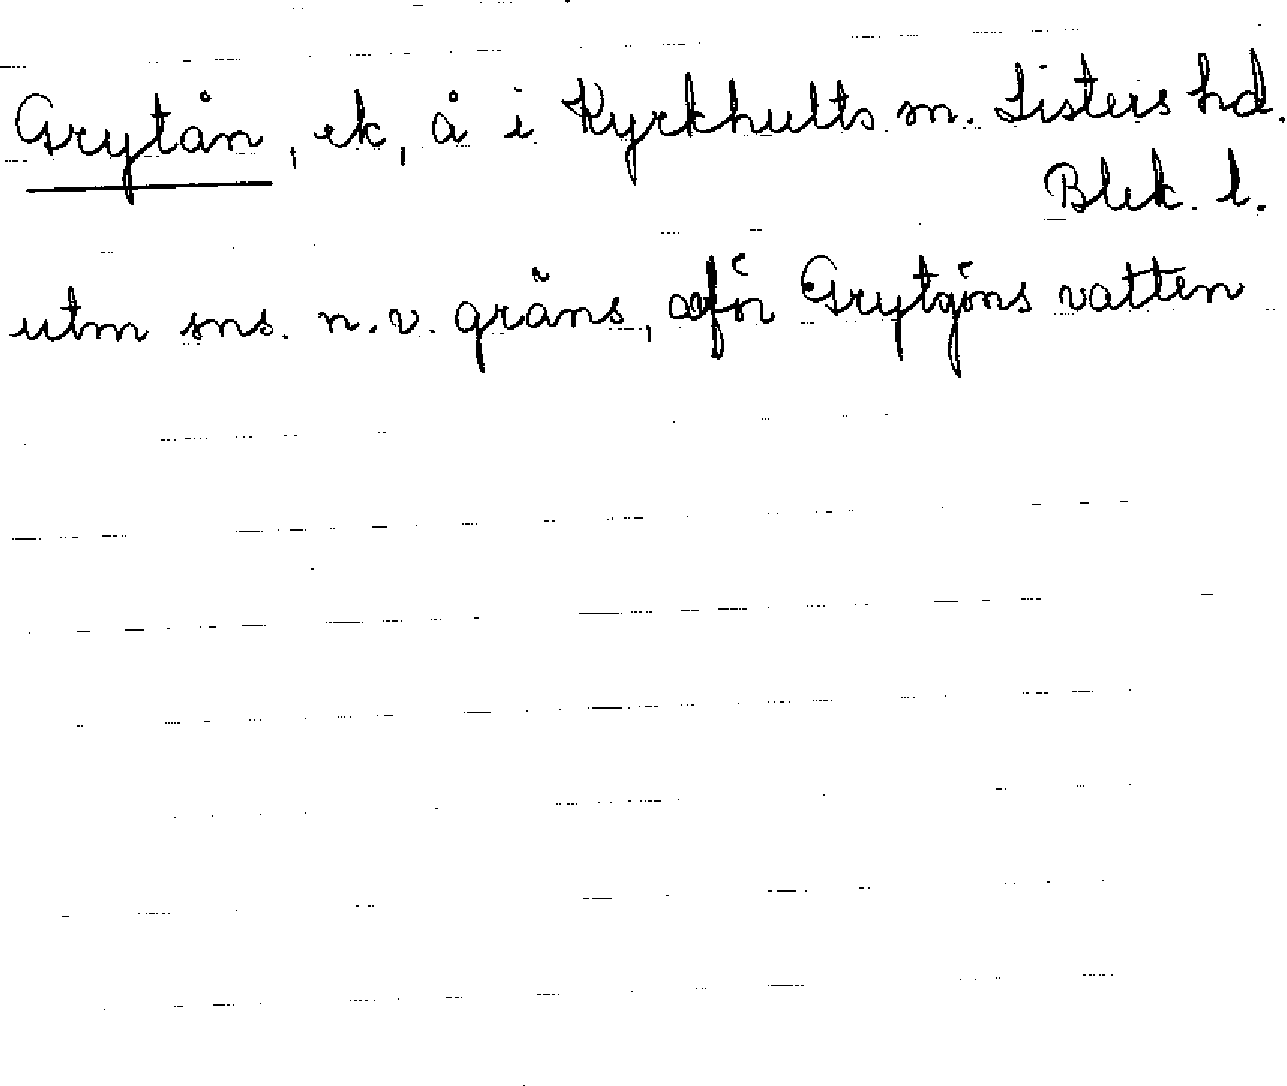 Grytån, ek, å i Kyrkhults sn. Listers hd.
Blek. l.
utm sns. n.v. gräns, afför Grytsjöns vatten